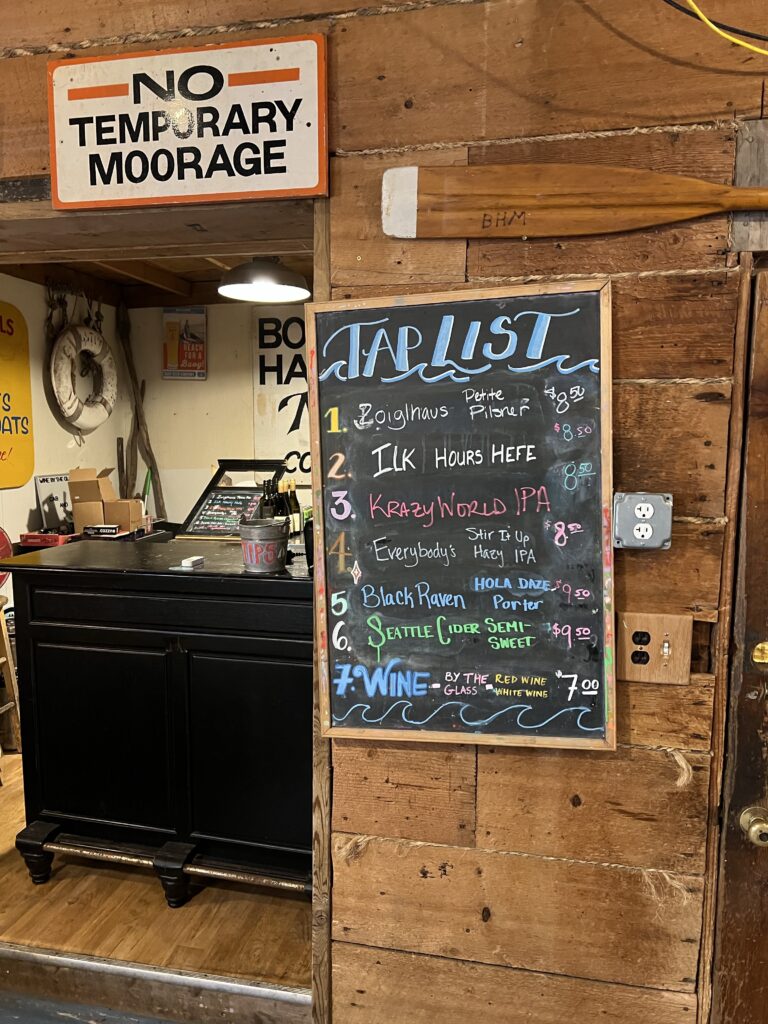 NO
TEMPORARY
MOORAGE
BHM
TAP LIST
1. Zoiglhaus Petite Pilsner $8.50
2. ILK HOURS HEFE $8.50
3. KRAZY WORLD IPA 8.50
4 Everybody's Stir It Up Hazy IPA $8.50
5 Black Raven HOLA DAZE Porter $9.50
6. SEATTLE CIDER SEMI-SWEET $9.50
7. WINE - BY THE GLASS - RED WINE WHITE WINE $7.00
REACH FOR A
BO
HA
CO
LS
TS
OATS
WINE BY THE
TIPS